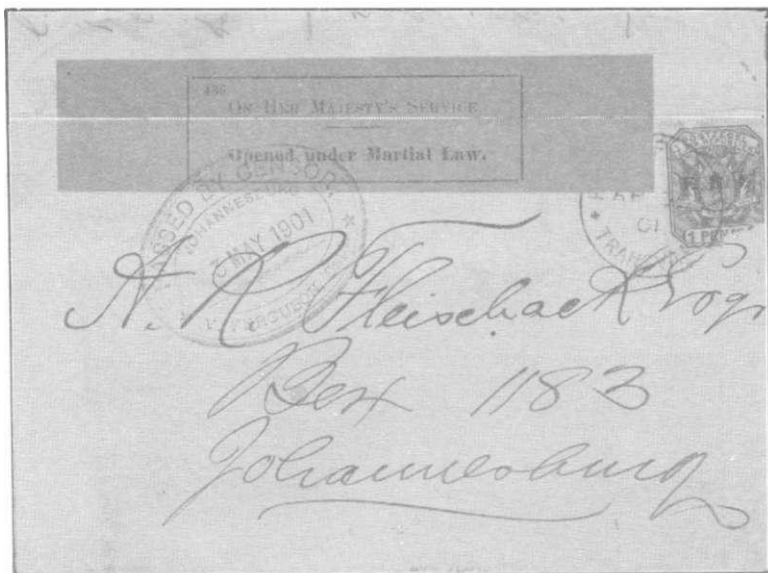 436
ON HER MAJESTY'S SERVICE.
Opened under Martial Law.
PASSED BY CENSOR,
JOHANNESBURG
MAY 1901
FERGUSON
TRA
01
1 PENNY
A. R. Fleischack Esqr
Box 1183
Johannesburg